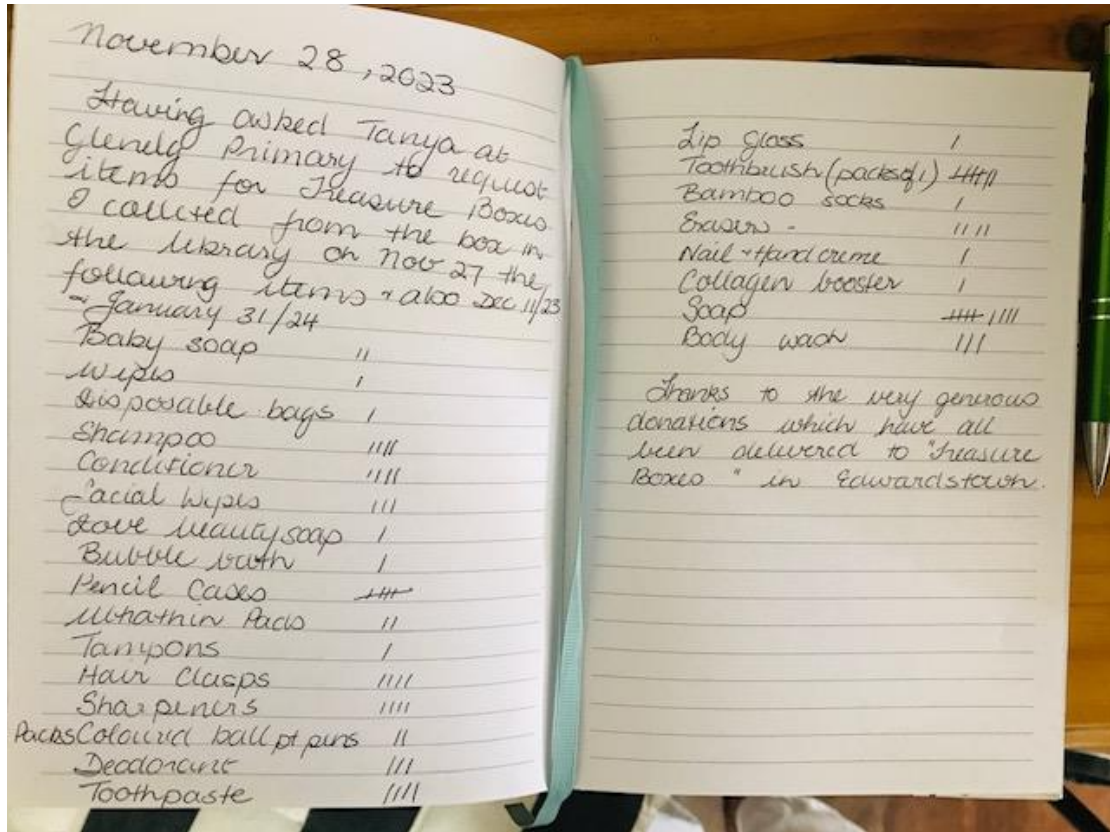 November 28, 2023
Having asked Tanya at
Glenelg Primary to request
items for Treasure Boxes
I collected from the box in
the library on Nov 27 the
following items + also Dec 11/23
~ January 31/24
Baby soap II
Wipes I
Disposable bags I
Shampoo IIII
Conditioner IIII
Facial Wipes III
Dove beauty soap I
Bubble bath I
Pencil Cases 卌
Ultrathin Pads II
Tampons I
Hair Clasps IIII
Sharpeners IIII
Packs Coloured ball pt pens II
Deodorant III
Toothpaste IIII
Lip Gloss I
Toothbrush (packs of 1) 卌 II
Bamboo socks I
Erasers - IIII
Nail + Hand creme I
Collagen booster I
Soap 卌 IIII
Body wash III
Thanks to the very generous
donations which have all
been delivered to "Treasure
Boxes" in Edwardstown.